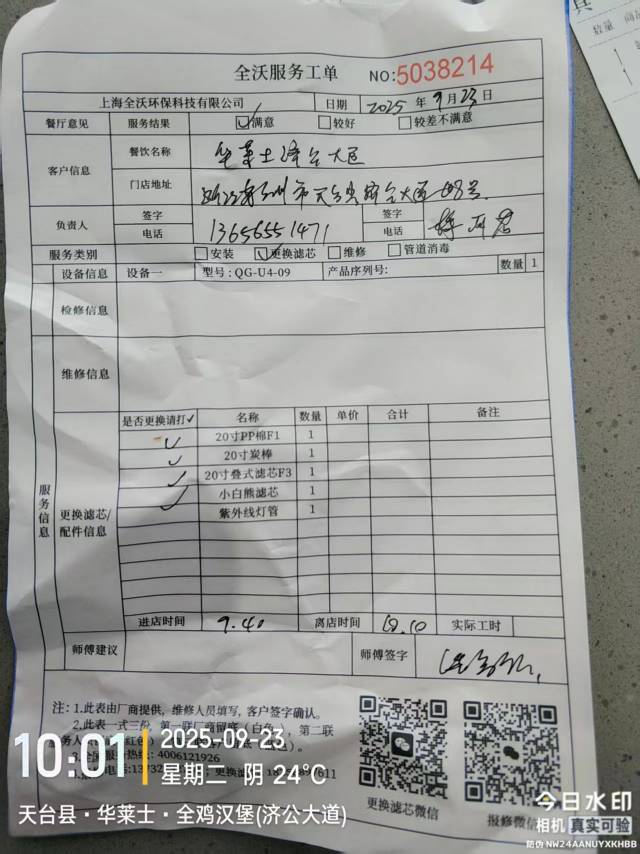 全沃服务工单 NO:5038214
上海全沃环保科技有限公司 日期 2025年9月23日
餐厅意见 服务结果 ☑满意 □较好 □较差不满意
客户信息 餐饮名称 华莱士济公大道
门店地址 浙江省台州市天台县济公大道
负责人 签字 电话 13656551471 签字 电话
服务类别 □安装 ☑更换滤芯 □维修 □管道消毒
设备信息 设备一 型号:QG-U4-09 产品序列号: 数量 1
检修信息
服务信息
维修信息
更换滤芯/配件信息
是否更换请打✓ 名称 数量 单价 合计 备注
✓ 20寸PP棉F1 1
✓ 20寸炭棒 1
✓ 20寸叠式滤芯F3 1
✓ 小白熊滤芯 1
紫外线灯管 1
进店时间 9.40 离店时间 10.10 实际工时
师傅建议 师傅签字
注:1.此表由厂商提供,维修人员填写,客户签字确认。
2.此表一式三份,第一联厂商留底(白色),第二联
4006121926
更换滤芯微信 报修微信
10:01 2025-09-23
星期二 阴 24℃
天台县·华莱士·全鸡汉堡(济公大道)
今日水印
相机 真实可验
防伪 NW24AANUYXKHBB
数量